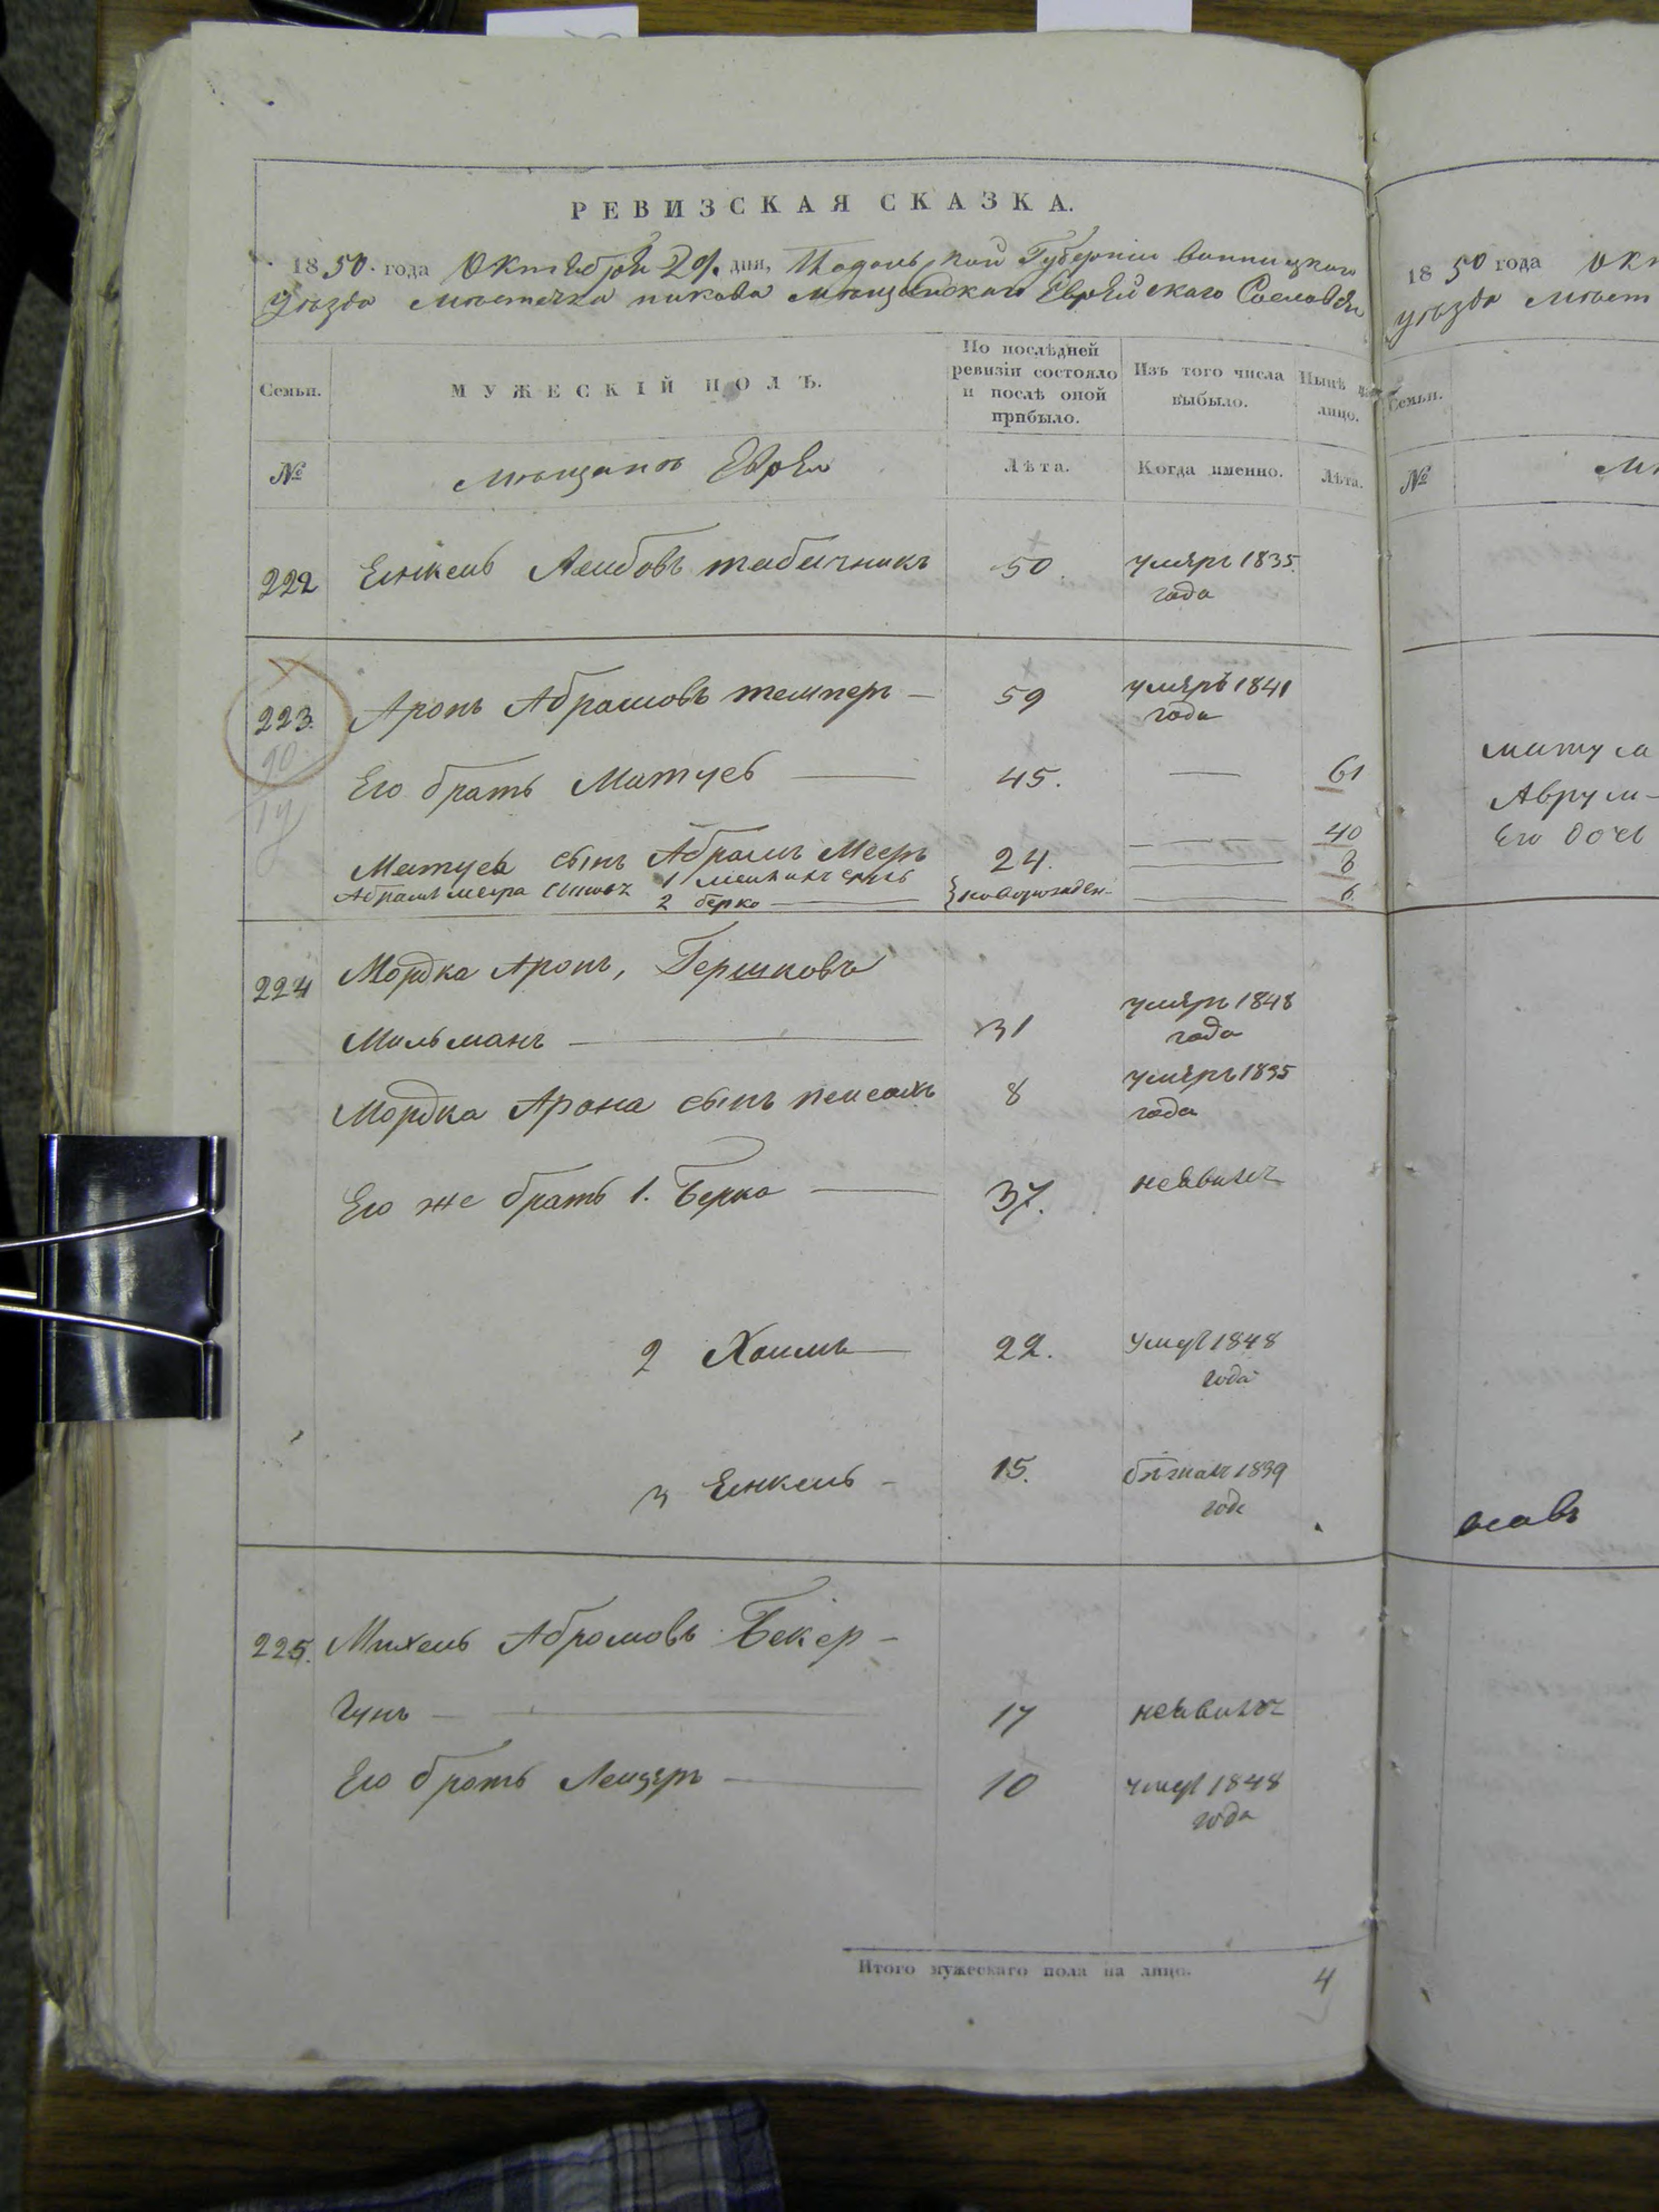 РЕВИЗСКАЯ СКАЗКА.
1850. года Октября 29. дня, Подольской Губерніи Винницкаго
уѣзда мѣстечка пикова мѣщанскаго Еврейскаго Сословія
Семьи.
МУЖЕСКІЙ ПОЛЪ.
По послѣдней ревизіи состояло и послѣ оной прибыло.
Изъ того числа выбыло.
Нынѣ на лицо.
№
мѣщане Евреи
Лѣта.
Когда именно.
Лѣта.
222 Еинкель Леибовъ табачникъ 50. умеръ 1835.
года
223. Аронъ Абрамовъ темперъ — 59 умеръ 1841
года
Его братъ Матусъ — 45. — 61
Матуса сынъ Абрамъ Мееръ 24. — 40
Абрамъ меера сыновя 1 — 8
2 берко — новорожден. — 6
224 Мордка Аронъ, Гершковъ
Мильманъ — 31 умеръ 1848
года
Мордка Арона сынъ пейсахъ 8 умеръ 1835
года
Его же братъ 1. Берко — 37. неявился
2 Хаимъ — 22. умер 1848
года
3 Еинкель — 15. бѣжалъ 1839
года
225. Михель Абромовъ Бекер-
гунъ — 17 неявился
Его братъ Лейзеръ — 10 умер 1848
года
Итого мужескаго пола на лицо. 4
1850 года Окт
уѣзда мѣст
Семьи.
№
М
матуса
Аврум-
Его дочь